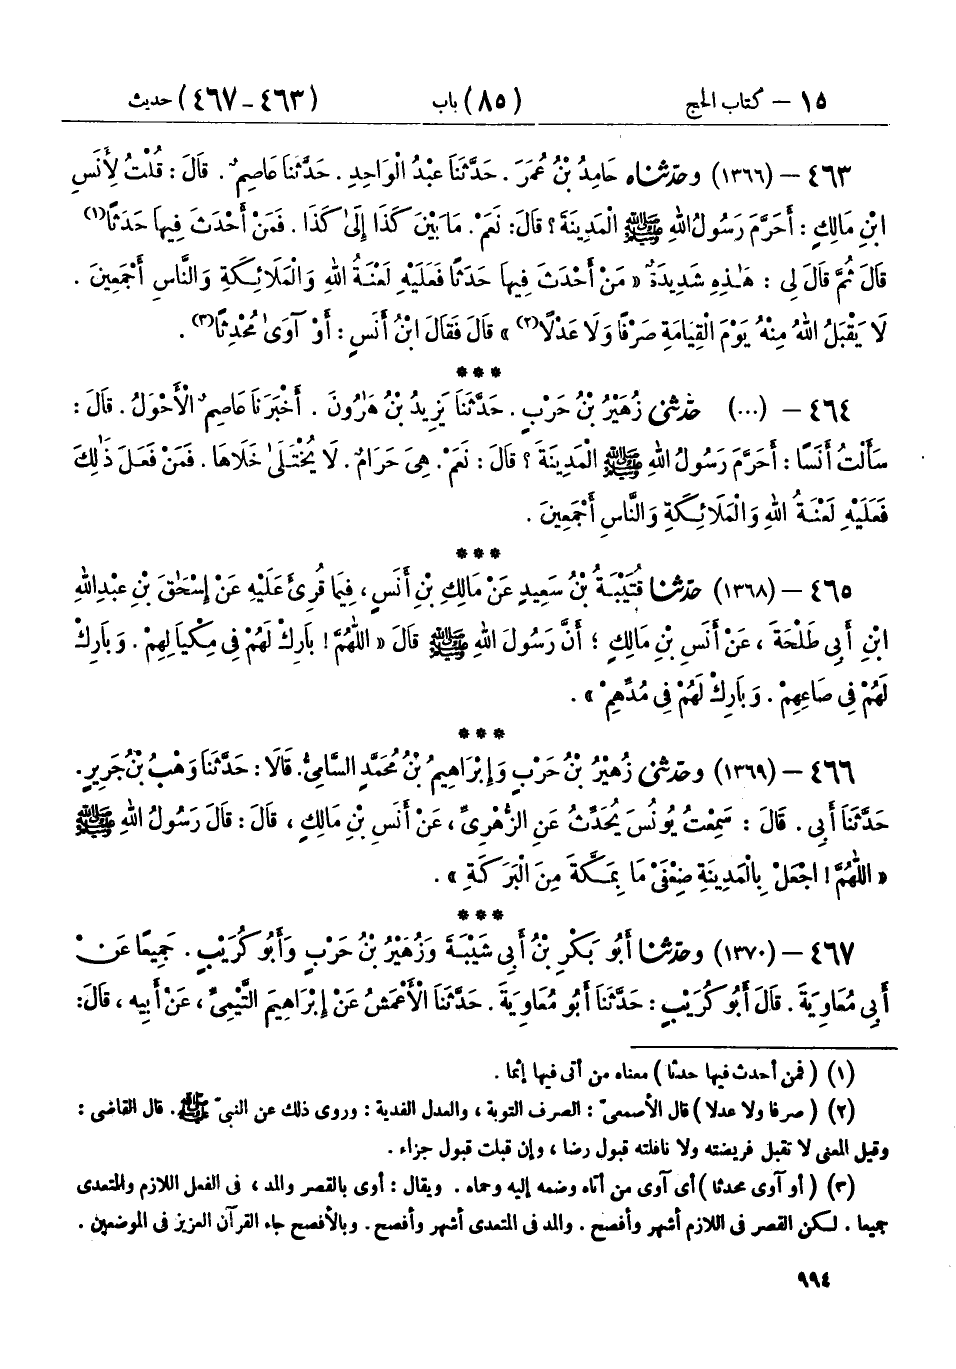 ١٥ – كتاب الحج (٨٥) باب (٤٦٣-٤٦٧) حديث
٤٦٣ – (١٣٦٦) وحدثناه حَامِدُ بْنُ عُمَرَ . حَدَّثَنَا عَبْدُ الْوَاحِدِ . حَدَّثَنَا عَاصِمٌ . قَالَ : قُلْتُ لِأَنَسِ
ابْنِ مَالِكٍ : أَحَرَّمَ رَسُولُ اللهِ ﷺ الْمَدِينَةَ ؟ قَالَ : نَعَمْ . مَا بَيْنَ كَذَا إِلَىٰ كَذَا . فَمَنْ أَحْدَثَ فِيهَا حَدَثًا(١)
قَالَ ثُمَّ قَالَ لِي : هَـٰذِهِ شَدِيدَةٌ « مَنْ أَحْدَثَ فِيهَا حَدَثًا فَعَلَيْهِ لَعْنَةُ اللهِ وَالْمَلَائِكَةِ وَالنَّاسِ أَجْمَعِينَ .
لَا يَقْبَلُ اللهُ مِنْهُ يَوْمَ الْقِيَامَةِ صَرْفًا وَلَا عَدْلًا(٢) » قَالَ فَقَالَ ابْنُ أَنَسٍ : أَوْ آوَىٰ مُحْدِثًا(٣) .
***
٤٦٤ – (...) حدثني زُهَيْرُ بْنُ حَرْبٍ . حَدَّثَنَا يَزِيدُ بْنُ هَارُونَ . أَخْبَرَنَا عَاصِمٌ الْأَحْوَلُ . قَالَ :
سَأَلْتُ أَنَسًا : أَحَرَّمَ رَسُولُ اللهِ ﷺ الْمَدِينَةَ ؟ قَالَ : نَعَمْ . هِيَ حَرَامٌ . لَا يُخْتَلَىٰ خَلَاهَا . فَمَنْ فَعَلَ ذَٰلِكَ
فَعَلَيْهِ لَعْنَةُ اللهِ وَالْمَلَائِكَةِ وَالنَّاسِ أَجْمَعِينَ .
***
٤٦٥ – (١٣٦٨) حدثنا قُتَيْبَةُ بْنُ سَعِيدٍ عَنْ مَالِكِ بْنِ أَنَسٍ ، فِيمَا قُرِئَ عَلَيْهِ عَنْ إِسْحَٰقَ بْنِ عَبْدِ اللهِ
ابْنِ أَبِي طَلْحَةَ ، عَنْ أَنَسِ بْنِ مَالِكٍ ؛ أَنَّ رَسُولَ اللهِ ﷺ قَالَ « اللَّهُمَّ ! بَارِكْ لَهُمْ فِي مِكْيَالِهِمْ . وَبَارِكْ
لَهُمْ فِي صَاعِهِمْ . وَبَارِكْ لَهُمْ فِي مُدِّهِمْ » .
***
٤٦٦ – (١٣٦٩) وحدثني زُهَيْرُ بْنُ حَرْبٍ وَإِبْرَاهِيمُ بْنُ مُحَمَّدٍ السَّامِيُّ . قَالَا : حَدَّثَنَا وَهْبُ بْنُ جَرِيرٍ .
حَدَّثَنَا أَبِي . قَالَ : سَمِعْتُ يُونُسَ يُحَدِّثُ عَنِ الزُّهْرِيِّ ، عَنْ أَنَسِ بْنِ مَالِكٍ ، قَالَ : قَالَ رَسُولُ اللهِ ﷺ
« اللَّهُمَّ ! اجْعَلْ بِالْمَدِينَةِ ضِعْفَيْ مَا بِمَكَّةَ مِنَ الْبَرَكَةِ » .
***
٤٦٧ – (١٣٧٠) وحدثنا أَبُو بَكْرِ بْنُ أَبِي شَيْبَةَ وَزُهَيْرُ بْنُ حَرْبٍ وَأَبُو كُرَيْبٍ . جَمِيعًا عَنْ
أَبِي مُعَاوِيَةَ . قَالَ أَبُو كُرَيْبٍ : حَدَّثَنَا أَبُو مُعَاوِيَةَ . حَدَّثَنَا الْأَعْمَشُ عَنْ إِبْرَاهِيمَ التَّيْمِيِّ ، عَنْ أَبِيهِ ، قَالَ :
(١) ( فمن أحدث فيها حدثا ) معناه من أتى فيها إثما .
(٢) ( صرفا ولا عدلا ) قال الأصمعيّ : الصرف التوبة ، والعدل الفدية : وروى ذلك عن النبيّ ﷺ . قال القاضى :
وقيل المعنى لا تقبل فريضته ولا نافلته قبول رضا ، وإن قبلت قبول جزاء .
(٣) ( أو آوى محدثا ) أى آوى من أتاه وضمه إليه وحماه . ويقال : أوى بالقصر والمد ، فى الفعل اللازم والمتعدى
جميعا . لكن القصر فى اللازم أشهر وأفصح . والمد فى المتعدى أشهر وأفصح . وبالأفصح جاء القرآن العزيز فى الموضعين .
٩٩٤